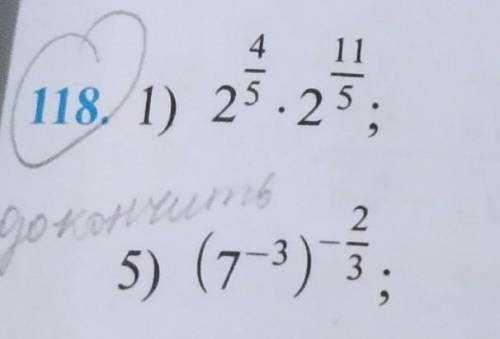 118. 1) 2^{4/5} · 2^{11/5};
докончить
5) (7^{-3})^{-2/3};